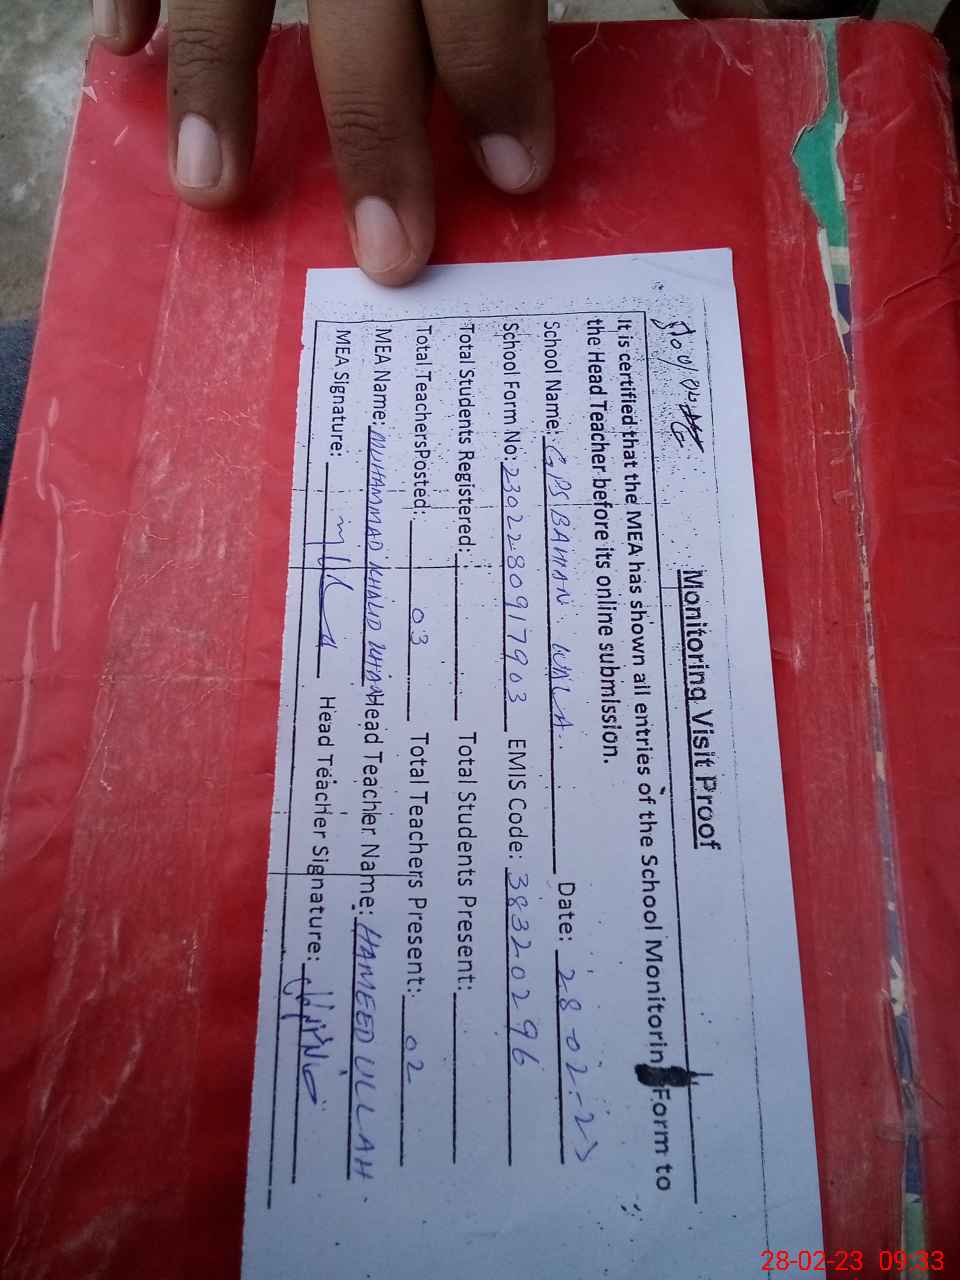 Monitoring Visit Proof
It is certified that the MEA has shown all entries of the School Monitorin Form to
the Head Teacher before its online submission.
School Name: GPS BAHAN WALA. Date: 28-02-23
School Form No: 230228091 7903 EMIS Code: 38320296
Total Students Registered: Total Students Present:
Total TeachersPosted: 03 Total Teachers Present: 02
MEA Name: MUHAMMAD KHALID KHAN Head Teacher Name: HAMEED ULLAH.
MEA Signature: Head Teacher Signature:
28-02-23 09:33